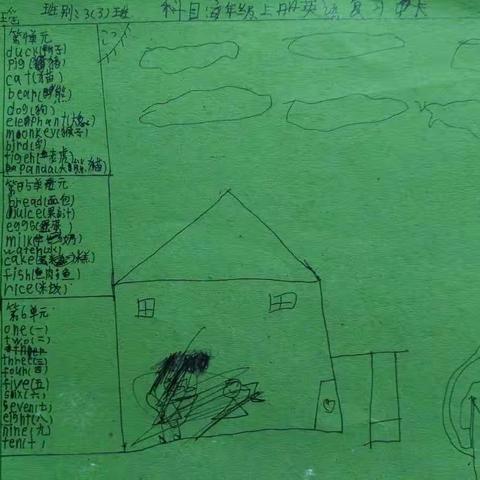 班别:3(3)班 科目:三年级上册英语复习单卡
第4单元
duck(鸭子)
pig(猪)
cat(猫)
bear(熊)
dog(狗)
elephant(大象)
monkey(猴子)
bird(鸟)
tigeh(老虎)
panda(大熊猫)
第5单元
bread(面包)
juice(果汁)
eggs(蛋)
milk(牛奶)
wateh(水)
cake(蛋糕)
fish(鱼肉)
rice(米饭)
第6单元
one(一)
two(二)
three(三)
four(四)
five(五)
six(六)
seven(七)
eight(八)
nine(九)
ten(十)